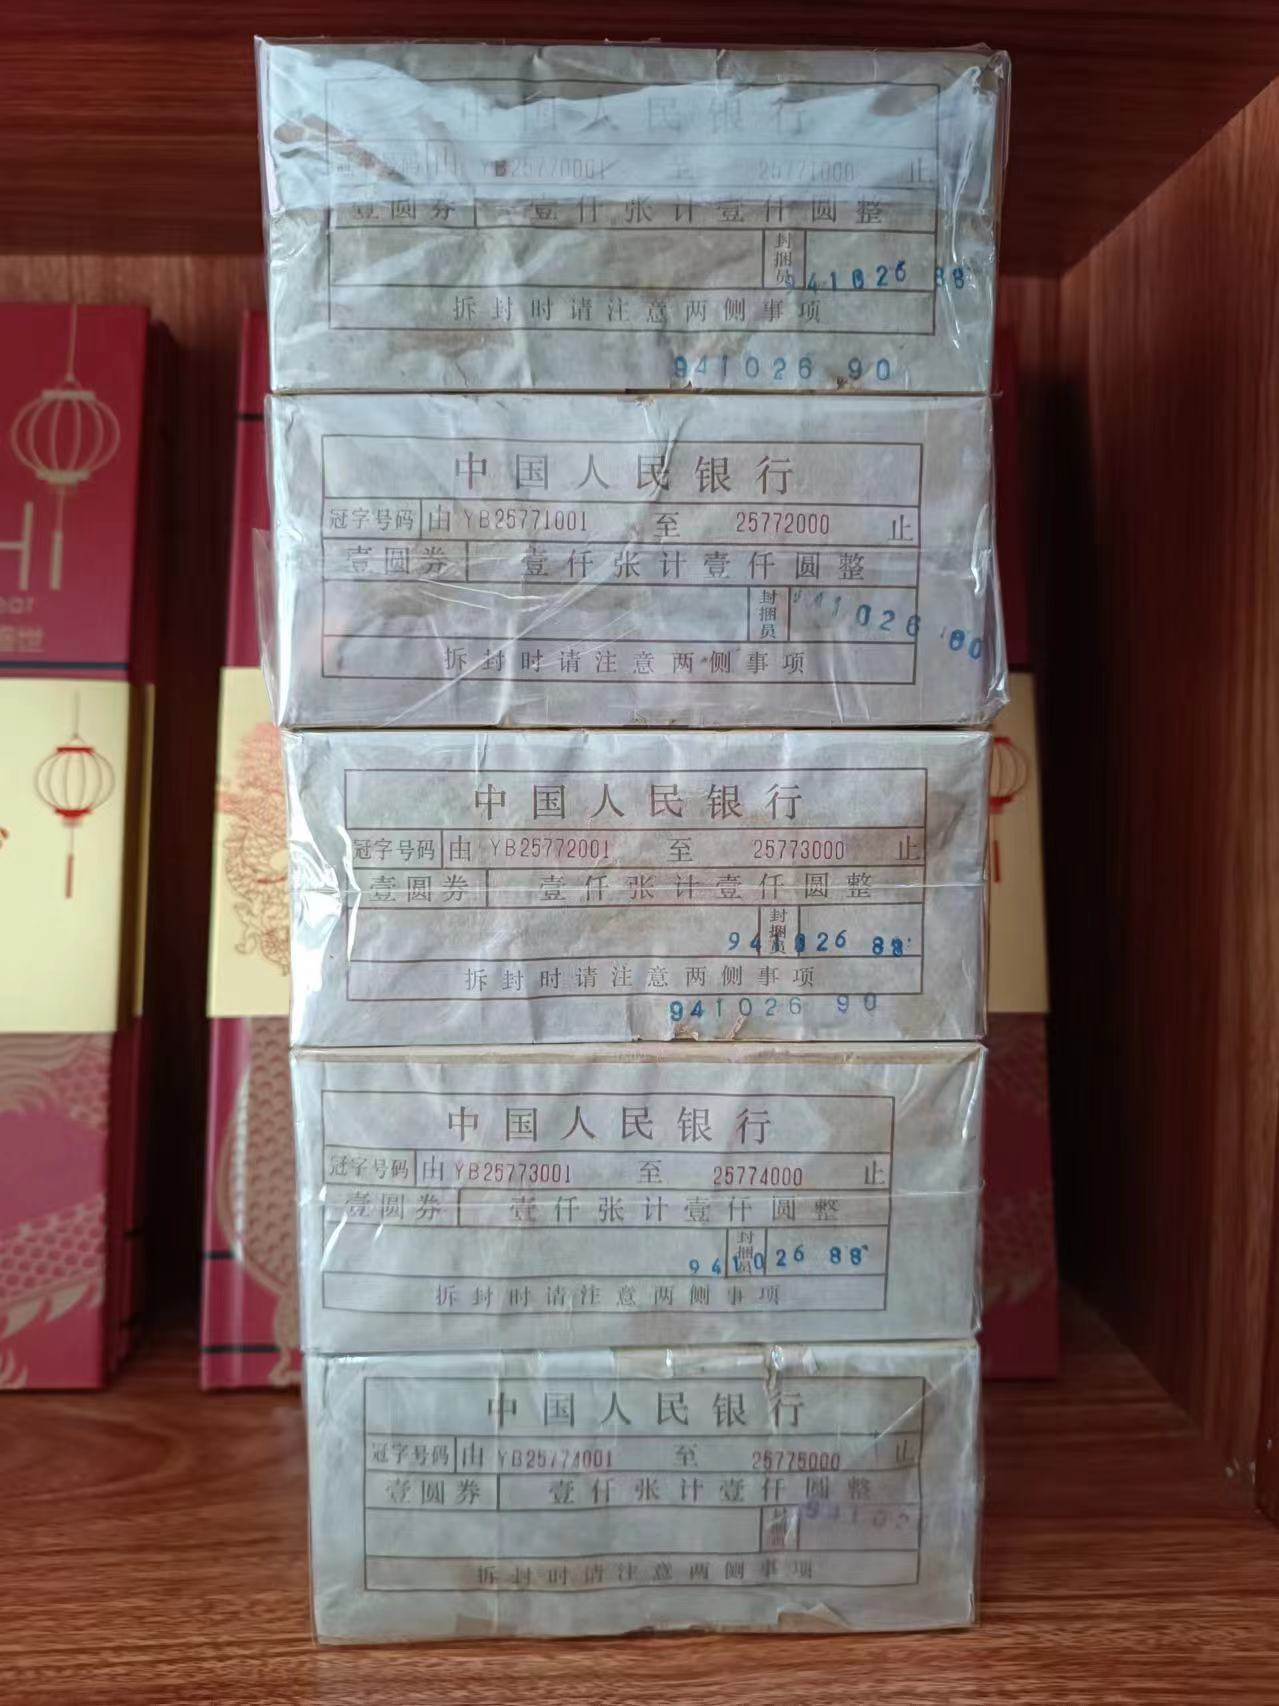 中国人民银行
冠字号码 由 YB25770001 至 25771000 止
壹圆券 壹仟张计壹仟圆整
封捆员 941026 88
拆封时请注意两侧事项
941026 90
中国人民银行
冠字号码 由 YB25771001 至 25772000 止
壹圆券 壹仟张计壹仟圆整
封捆员 941026
拆封时请注意两侧事项
中国人民银行
冠字号码 由 YB25772001 至 25773000 止
壹圆券 壹仟张计壹仟圆整
封捆员 941026 88
拆封时请注意两侧事项
941026 90
中国人民银行
冠字号码 由 YB25773001 至 25774000 止
壹圆券 壹仟张计壹仟圆整
封捆员 941026 88
拆封时请注意两侧事项
中国人民银行
冠字号码 由 YB25774001 至 25775000 止
壹圆券 壹仟张计壹仟圆整
封捆员 941026
拆封时请注意两侧事项
HI
ear